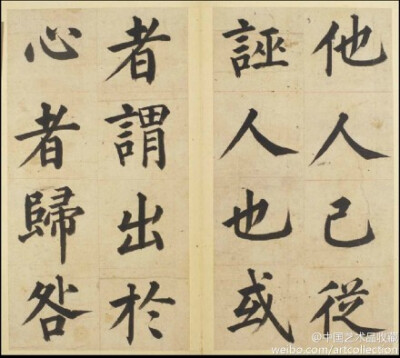 他人己從
誣人也或
者謂出於
心者歸咎
@中国艺术品收藏
weibo.com/artcollection